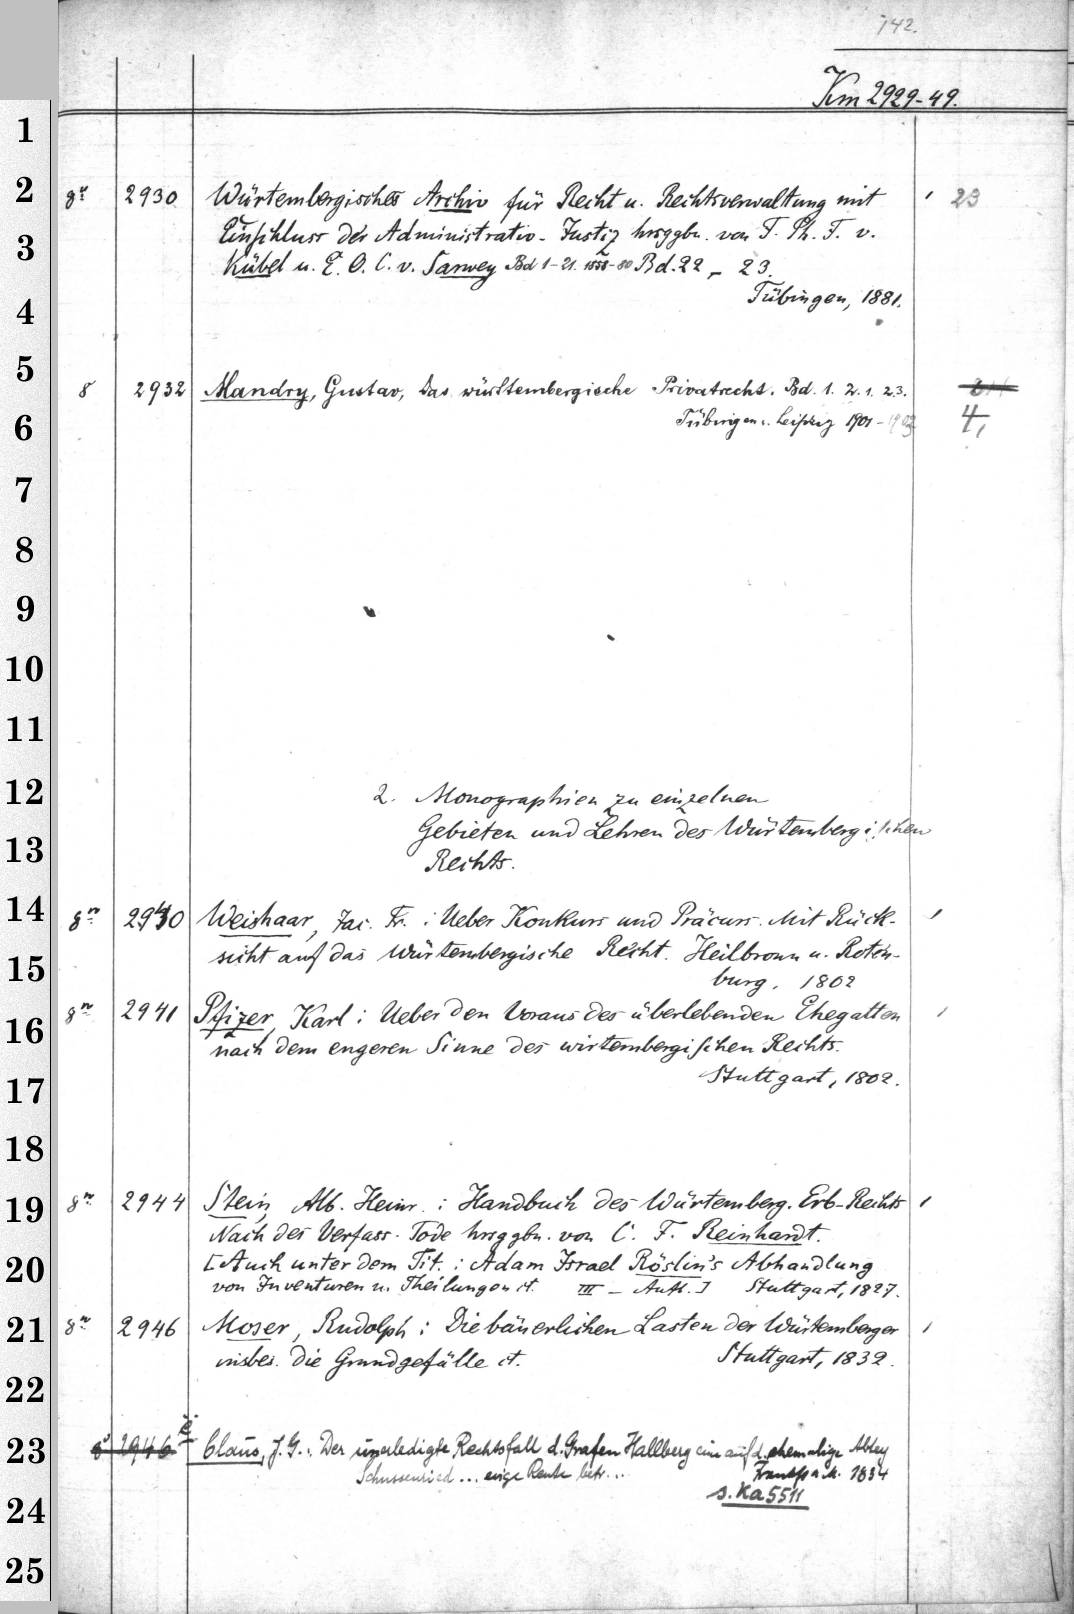 142.
Km 2929-49.
1
2
3
4
5
6
7
8
9
10
11
12
13
14
15
16
17
18
19
20
21
22
23
24
25
8º 2930 Würtembergisches Archiv für Recht u. Rechtsverwaltung mit ' 23
Einschluss der Administrativ-Justiz hrsggbn. von F. Ph. F. v.
Kübel u. E. O. C. v. Sarwey Bd 1-21. 1858-80 Bd. 22 - 23.
Tübingen, 1881.
8 2932 Mandry, Gustav, Das württembergische Privatrecht. Bd. 1. 2. 1. 2.3.
4,
Tübingen u. Leipzig 1901-1903
2. Monographien zu einzelnen
Gebieten und Lehren des Würtembergischen
Rechts.
8º 2940 Weishaar, Jac. Fr. : Ueber Konkurs und Präcurs. Mit Rück- '
sicht auf das Würtembergische Recht. Heilbronn u. Roten-
burg, 1802
8º 2941 Pfizer, Karl : Ueber den Voraus des überlebenden Ehegatten '
nach dem engeren Sinne des wirtembergischen Rechts.
Stuttgart, 1802.
8º 2944 Stein, Alb. Heinr. : Handbuch des Würtemberg. Erb-Rechts '
Nach des Verfass. Tode hrsggbn. von C. F. Reinhardt.
[Auch unter dem Tit. : Adam Israel Röslin's Abhandlung
von Inventuren u. Theilungen et. III - Aufl.] Stuttgart, 1827.
8º 2946 Moser, Rudolph : Die bäuerlichen Lasten der Würtemberger '
insbes. die Grundgefälle et. Stuttgart, 1832.
8º 2946 e Claus, J. G. : Der unerledigte Rechtsfall d. Grafen Hallberg eine auf d. ehemalige Abtey
Schussenried ... ewige Rente betr. ... Frankf a. M. 1834
s. Ka 5511